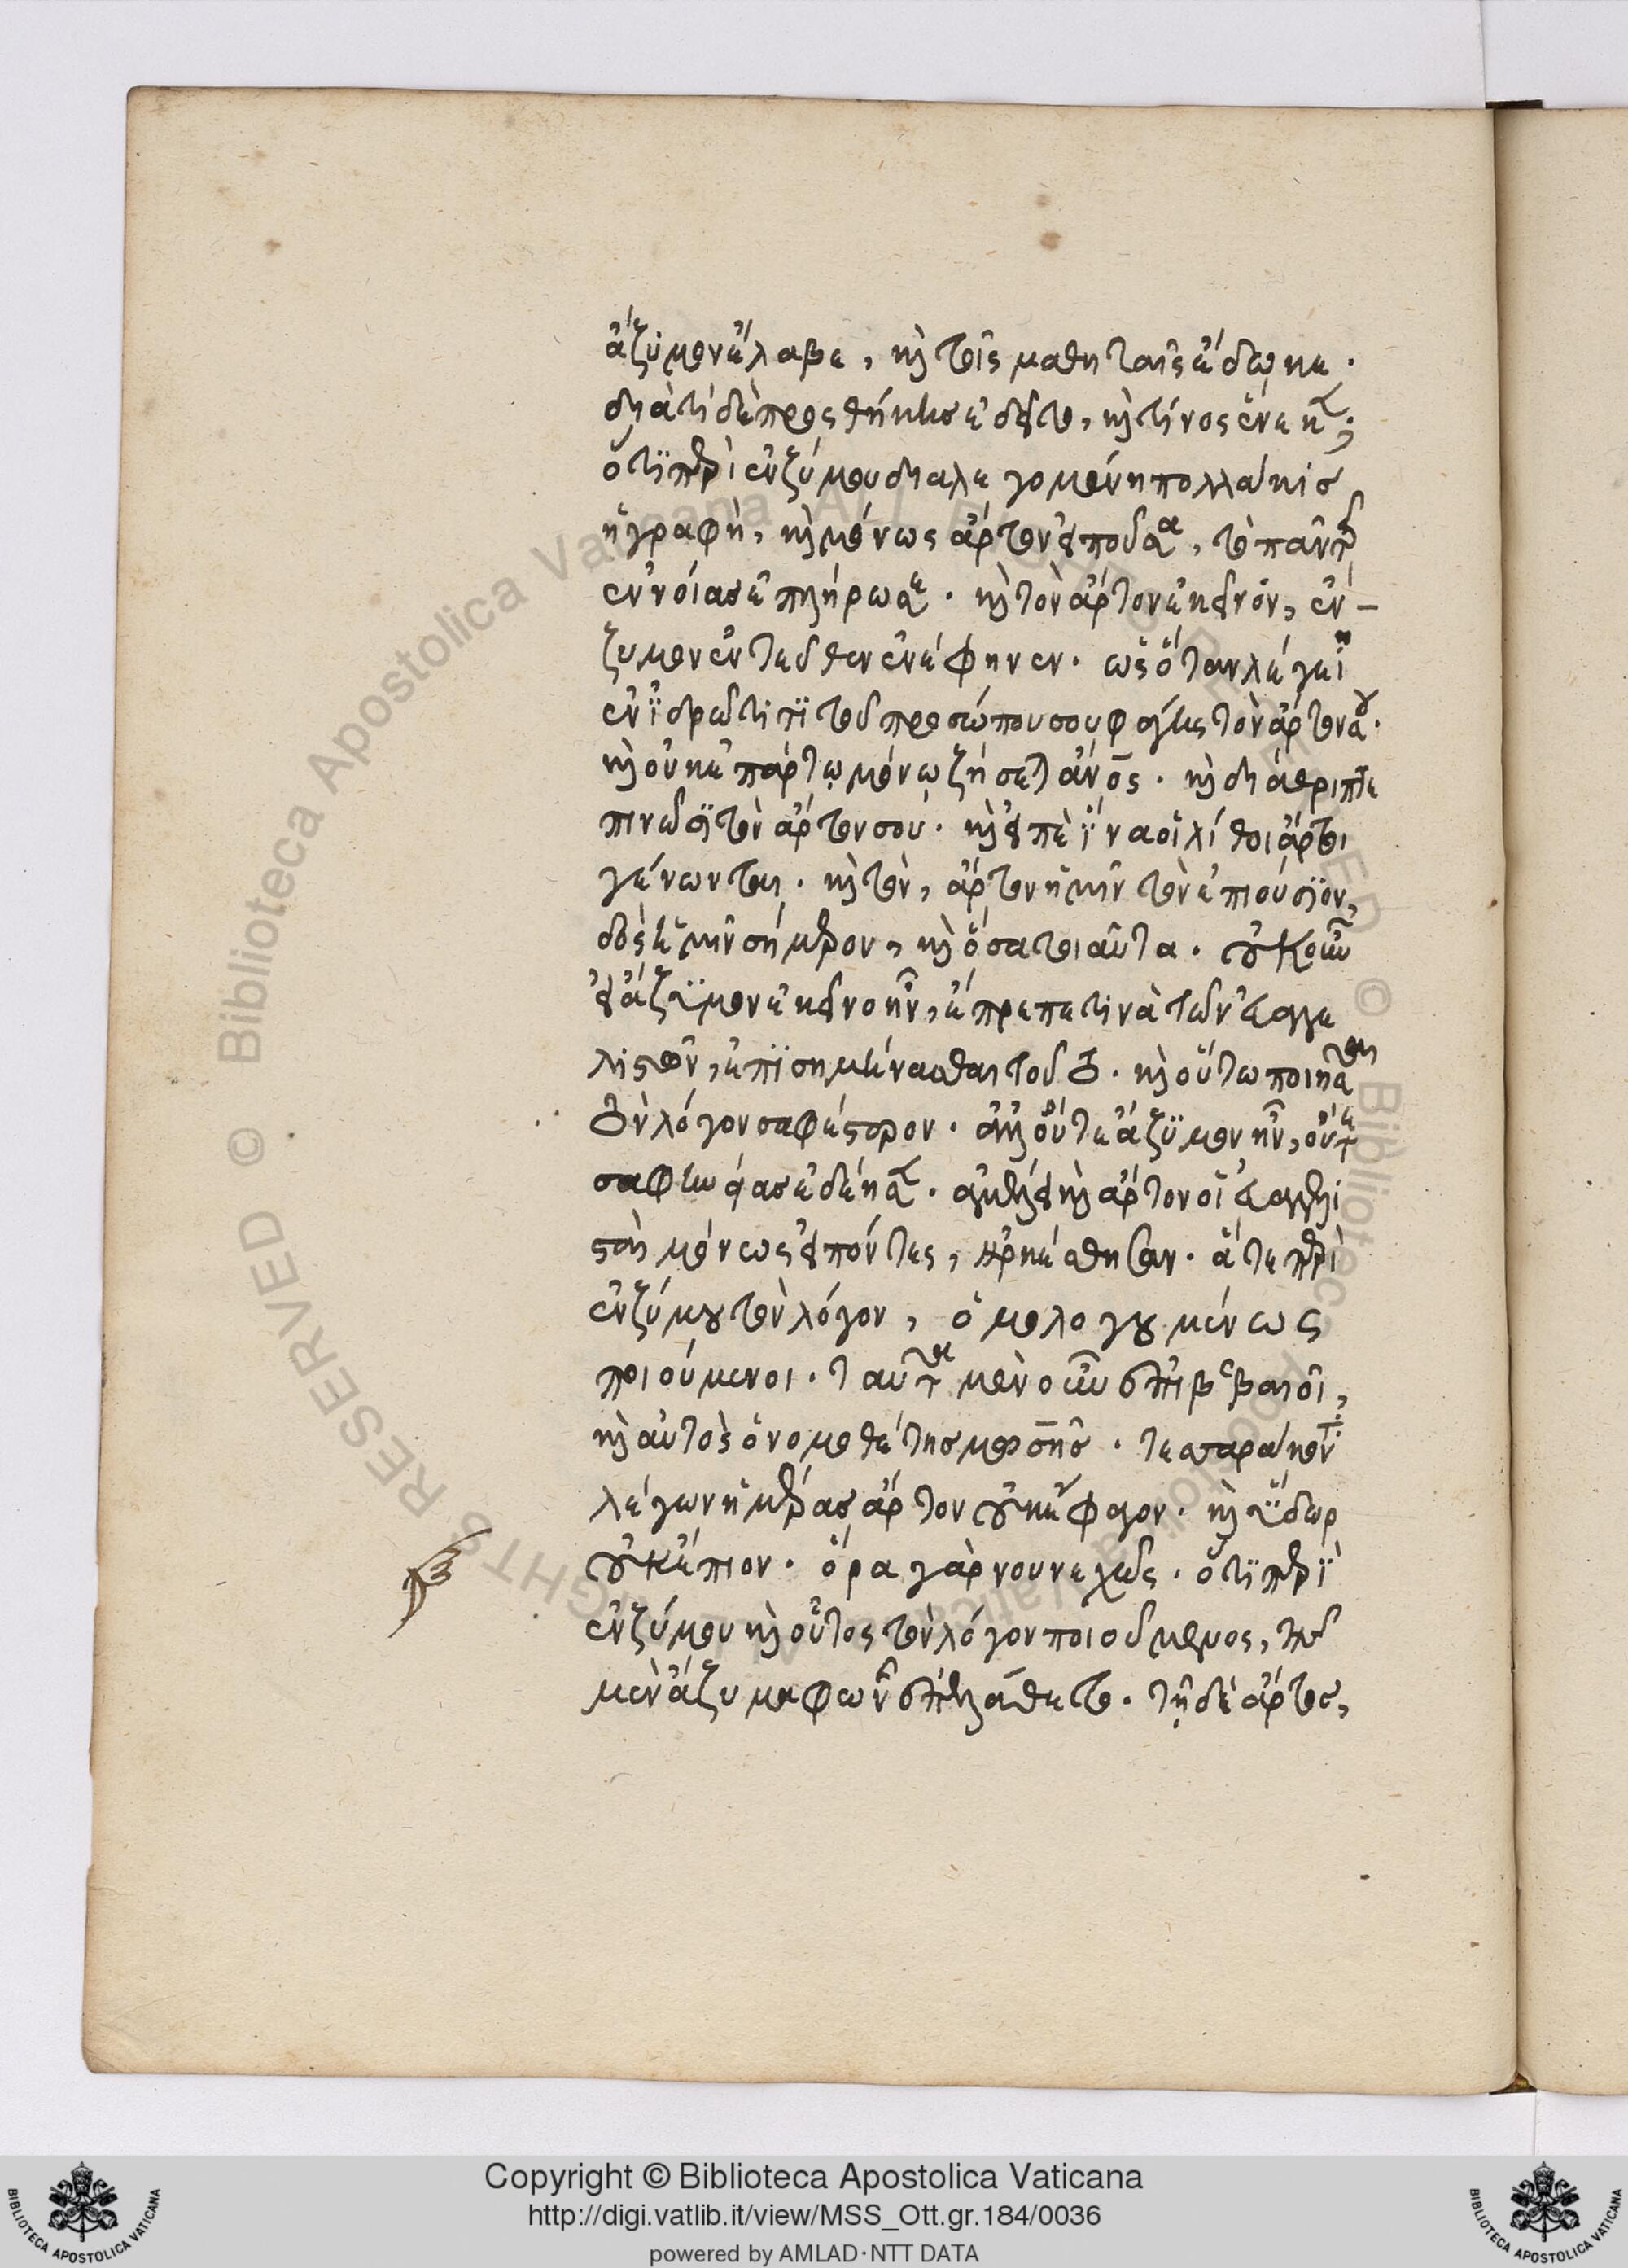 ἄζυμον ἔλαβε, καὶ τοῖς μαθηταῖς ἔδωκε.
διατί δὲ προσθήκης ἐδεῖτο, καὶ τίνος ἕνεκα;
ὅτι περὶ ἐνζύμου διαλεγομένη πολλάκις
ἡ γραφὴ, καὶ μόνως ἄρτον εἰποῦσα, τὸ πᾶν τῆς
ἐννοίας ἐπλήρωσε. καὶ τὸν ἄρτον ἐκεῖνον, ἐν-
ζυμον ἐντεῦθεν ἐνέφηνεν. ὡς ὅταν λέγῃ
ἐν ἱδρῶτι τοῦ προσώπου σου φάγῃς τὸν ἄρτον σου.
καὶ οὐκ ἐπ' ἄρτῳ μόνῳ ζήσεται ἄνος. καὶ διάθρυπτε
πινῶσι τὸν ἄρτον σου. καὶ εἰπὲ ἵνα οἱ λίθοι ἄρτοι
γένωνται. καὶ τὸν, ἄρτον ἡμῶν τὸν ἐπιούσιον,
δὸς ἡμῖν σήμερον, καὶ ὅσα τοιαῦτα. οὐκοῦν
εἰ ἄζυμον ἐκεῖνο ἦν, ἔπρεπέ τινὰ τῶν εὐαγγε
λιστῶν, ἐπισημήνασθαι τοῦτο. καὶ οὕτω ποιῆσαι
τὸν λόγον σαφέστερον. ἀλλ' οὔτε ἄζυμον ἦν, οὔτε
σαφηνείας ἐδέησε. ἀμέλει καὶ ἄρτον οἱ εὐαγγελι
σταὶ μόνως εἰπόντες, ἠρκέσθησαν. ἅτε περὶ
ἐνζύμου τὸν λόγον, ὁμολογουμένως
ποιούμενοι. ταύτην μὲν οὖν ἐπιβεβαιοῖ,
καὶ αὐτὸς ὁ νομοθέτης μωσῆς. τεσσαράκοντα
λέγων ἡμέρας ἄρτον οὐκ ἔφαγον. καὶ ὕδωρ
οὐκ ἔπιον. ὅρα γὰρ νουνεχῶς. ὅτι περὶ
ἐνζύμου καὶ οὗτος τὸν λόγον ποιούμενος, τῶν
μὲν ἀζύμων φωνὴν ἐπελάθετο. τῇ δὲ ἄρτος,
Copyright © Biblioteca Apostolica Vaticana
http://digi.vatlib.it/view/MSS_Ott.gr.184/0036
powered by AMLAD·NTT DATA